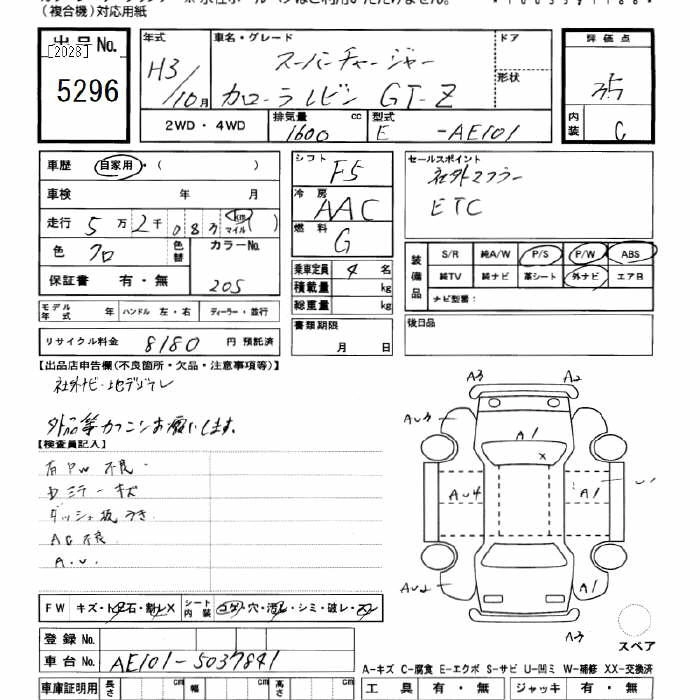 （複合機）対応用紙
出品No.
[2028]
5296
年式
H3/10月
車名・グレード
スーパーチャージャー
カローラレビン GT-Z
ドア
形状
評価点
3.5
内装
C
2WD・4WD
排気量 1600 cc
型式 E -AE101
車歴 自家用・( )
車検 年 月
走行 5万2千083 km マイル ( )
色 クロ 色替 カラーNo. 205
保証書 有・無
シフト F5
冷房 AAC
燃料 G
乗車定員 4 名
積載量 kg
総重量 kg
書類期限
月 日
セールスポイント
社外マフラー
ETC
装備品
S/R 純A/W P/S P/W ABS
純TV 純ナビ 革シート 外ナビ エアB
ナビ型番：
後日品
モデル年式 年 ハンドル 左・右 ディーラー・並行
リサイクル料金 8180 円 預託済
【出品店申告欄(不良箇所・欠品・注意事項等)】
社外ナビ・地デジテレ
外品等カクニンお願いします。
【検査員記入】
右PW 不良
キズ
ダッシュ板 うき
AC 不良
A.U.
A3 A2
AU3 A1
AU4 A1
AU2 A1
A3
スペア
FW キズ・ト石・割レX シート内装 コゲ・穴・汚レ・シミ・破レ・スレ
登録No.
車台No. AE101-5037841
A-キズ C-腐食 E-エクボ S-サビ U-凹ミ W-補修 XX-交換済
車庫証明用 長さ cm 幅 cm 高さ cm
工具 有・無 ジャッキ 有・無